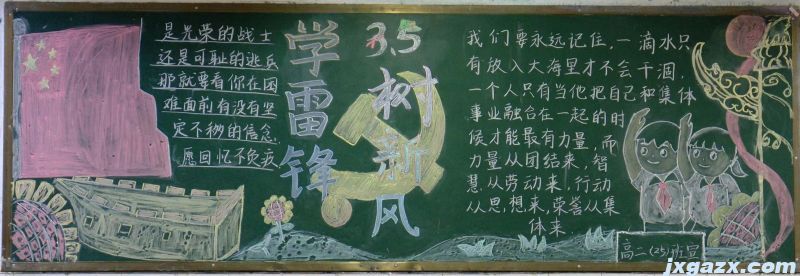 是光荣的战士
还是可耻的逃兵
那就要看你在困
难面前有没有坚
定不移的信念
愿回忆不负疚
学雷锋
3.5
树新风
我们要永远记住，一滴水只
有放入大海里才不会干涸，
一个人只有当他把自己和集体
事业融合在一起的时
候才能最有力量，而
力量从团结来，智
慧从劳动来，行动
从思想来，荣誉从集
体来
高二(25)班宣
jxgazx.com